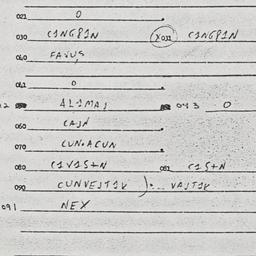 021 0
030 CINGPIN X031 CINGPIN
040 FAVUS
041 0
042 ALIMAI 043 0
060 CAJA
070 CUNACUN
080 CIVISTN 081 CISTN
090 CUNVEJTIK ) VAJTIK
091 NEX